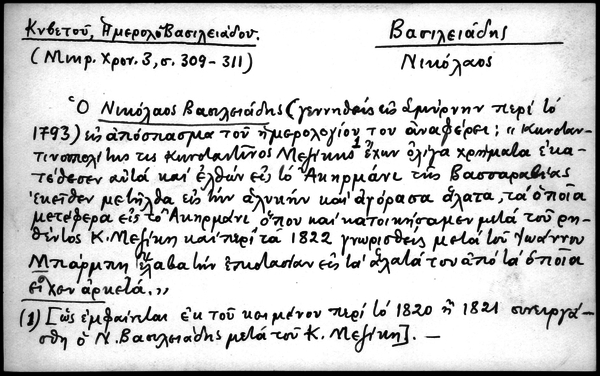 Κυβετού, Ἡμερολό Βασιλειάδου.
(Μικρ. Χρον. 3, σ. 309-311)
Βασιλειάδης
Νικόλαος
Ὁ Νικόλαος Βασιλειάδης (γεννηθείς εἰς Σμύρνην περί τό
1793) εἰς ἀπόσπασμα τοῦ ἡμερολογίου του ἀναφέρει: „Κωνσταν-
τινοπολίτης τις Κωνσταντῖνος Μεζίκης¹ ἔχων ὀλίγα χρήματα ἐκα-
τέθεσεν αὐτά καί ἐλθών εἰς τό Ἀκηρμάνι τῆς Βασσαραβίας
ἐκεῖθεν μετῆλθα εἰς τήν ἁλυκήν καί ἀγόρασα ἅλατα, τά ὁποῖα
μετέφερα εἰς τό Ἀκηρμάνι ὅπου καί κατοικήσαμεν μετά τοῦ ρη-
θέντος Κ. Μεζίκη καί περί τά 1822 γνωρισθείς μετά τοῦ Ἰωάννου
Μπάρμπη ἔλαβα τήν ἐπιστασίαν εἰς τά ἅλατά του ἀπό τά ὁποῖα
εἶχον ἀρκετά."
(1) [ὡς ἐμφαίνεται ἐκ τοῦ κειμένου περί τό 1820 ἤ 1821 συνειργά-
σθη ὁ Ν. Βασιλειάδης μετά τοῦ Κ. Μεζίκη]. —